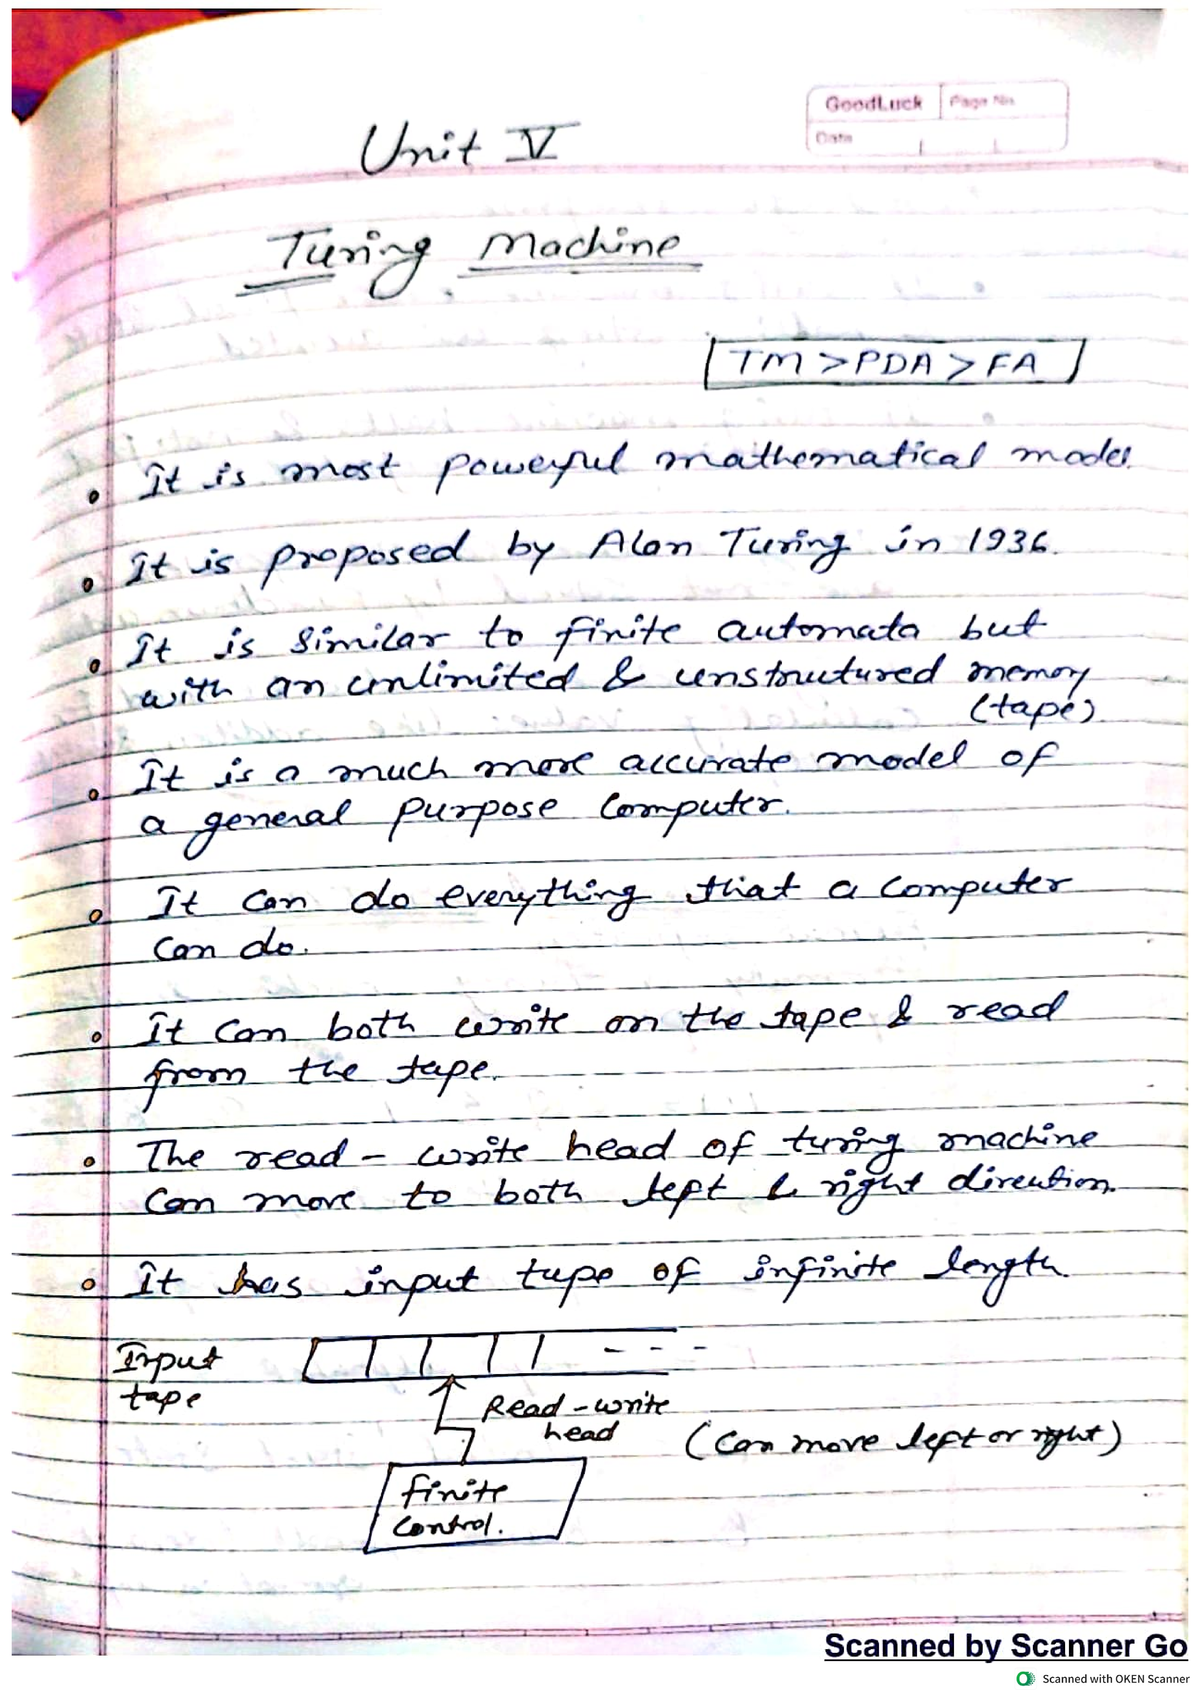 GoodLuck
Page No.
Date
Unit V
Turing Machine
TM > PDA > FA
It is most powerful mathematical model.
It is proposed by Alan Turing in 1936.
It is similar to finite automata but
with an unlimited & unstructured memory
(tape)
It is a much more accurate model of
a general purpose computer.
It can do everything that a computer
can do.
It can both write on the tape & read
from the tape.
The read - write head of turing machine
can move to both left & right direction.
It has input tape of infinite length.
Input
tape
Read - write
head
(can move left or right)
finite
control.
Scanned by Scanner Go
Scanned with OKEN Scanner